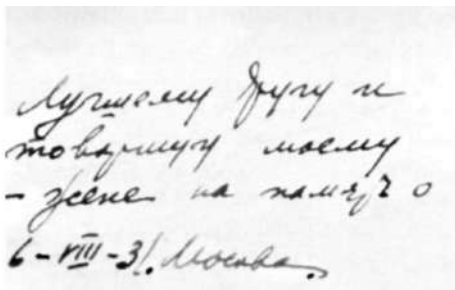 Лучшему другу и
товарищу моему
- жене на память о
6-VIII-31. Москва.